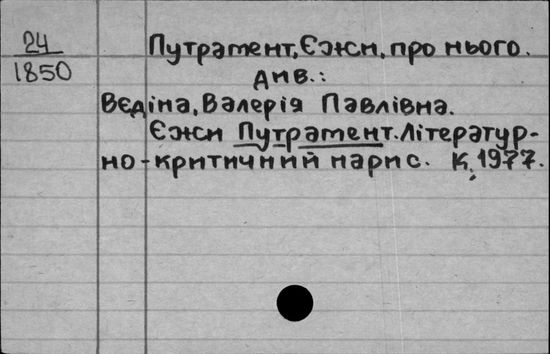 24
1850
Путрамент, Єжи, про нього.
див.:
Вєдіна, Валерія Павлівна.
Єжи Путрамент. Літератур-
но-критичний нарис. К., 1977.